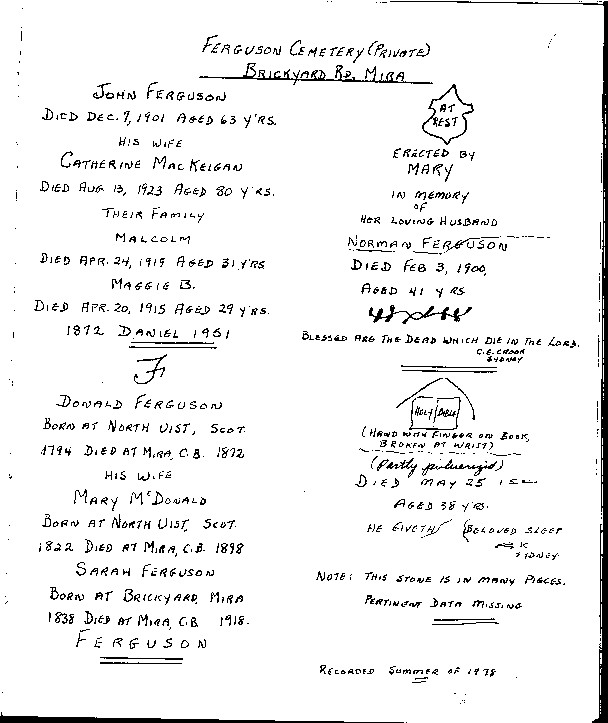 FERGUSON CEMETERY (PRIVATE)
BRICKYARD RD. MIRA
JOHN FERGUSON
DIED DEC. 9, 1901 AGED 63 Y'RS.
HIS WIFE
CATHERINE MACKEIGAN
DIED AUG. 13, 1923 AGED 80 Y'RS.
THEIR FAMILY
MALCOLM
DIED APR. 24, 1919 AGED 31 Y'RS
MAGGIE B.
DIED APR. 20, 1915 AGED 29 Y'RS.
1872 DANIEL 1951
F
DONALD FERGUSON
BORN AT NORTH UIST, SCOT.
1794 DIED AT MIRA, C.B. 1872
HIS WIFE
MARY McDONALD
BORN AT NORTH UIST, SCOT.
1822 DIED AT MIRA, C.B. 1898
SARAH FERGUSON
BORN AT BRICKYARD, MIRA
1838 DIED AT MIRA, C.B. 1918.
FERGUSON
AT
REST
ERECTED BY
MARY
IN MEMORY
OF
HER LOVING HUSBAND
NORMAN FERGUSON
DIED FEB 3, 1900,
AGED 41 YRS
BLESSED ARE THE DEAD WHICH DIE IN THE LORD.
C.E. CROOK
SYDNEY
HOLY BIBLE
(HAND WITH FINGER ON BOOK,
BROKEN AT WRIST)
(Partly pulverized)
DIED MAY 25
AGED 38 Y'RS.
HE GIVETH (BELOVED SLEEP
K
SYDNEY
NOTE: THIS STONE IS IN MANY PIECES.
PERTINENT DATA MISSING
RECORDED SUMMER OF 1978